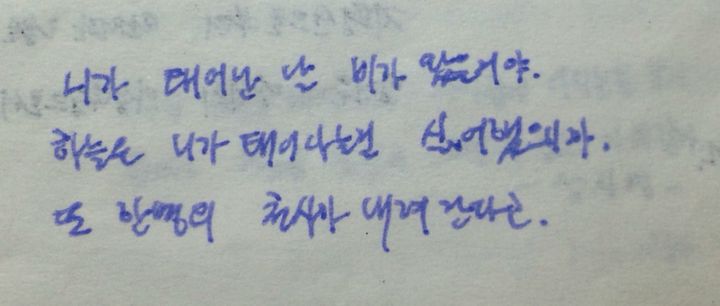 니가 태어난 날 비가 왔드래야.
하늘도 니가 태어나는걸 싫어했으니까.
또 한명의 천사가 내려간다고.